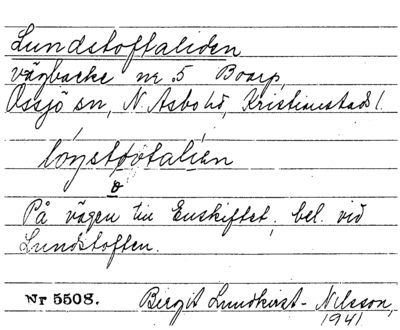 Lundstoftaliden
vägbacke nr 5 Boarp,
Össjö sn, N. Åsbo hd, Kristianstads l.
På vägen till Enskiftet, bel. vid
Lundstoften.
Nr 5508. Birgit Lundkvist-Nilsson,
1941